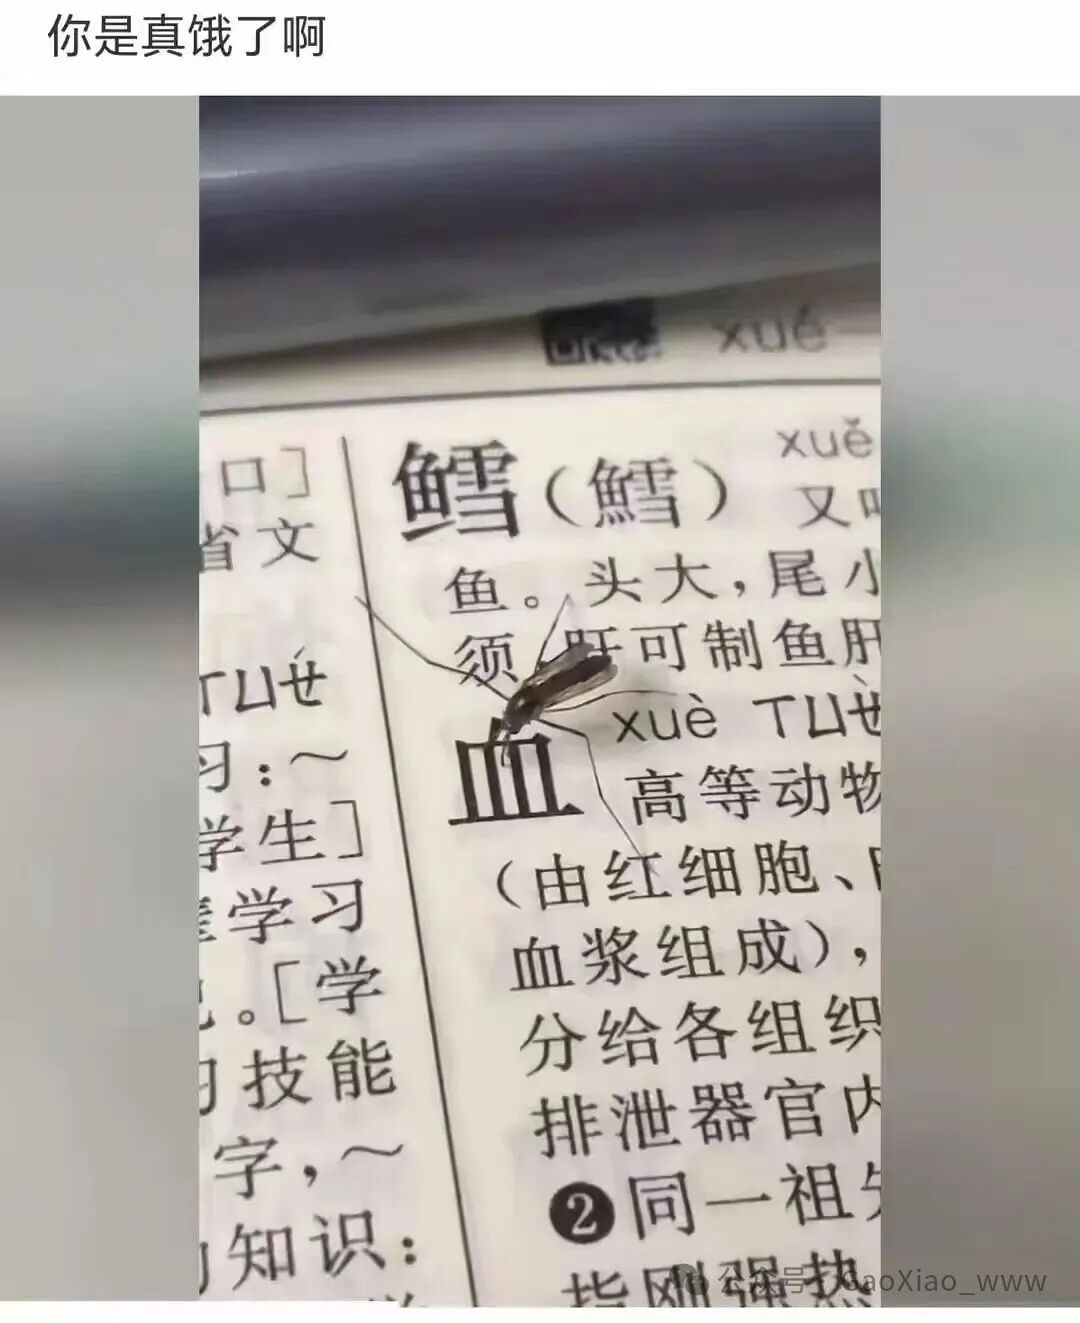 你是真饿了啊
xué
口]
省文
ㄒㄩㄝˊ
习：～
学生]
学习
。[学
习技能
字，～
知识：
鳕（鱈）
xuě
又
鱼。头大，尾小
须，肝可制鱼肝
血
xuè ㄒㄩㄝˋ
高等动物
（由红细胞、
血浆组成），
分给各组织
排泄器官内
❷同一祖先
指刚强热
公众号 · GaoXiao_www